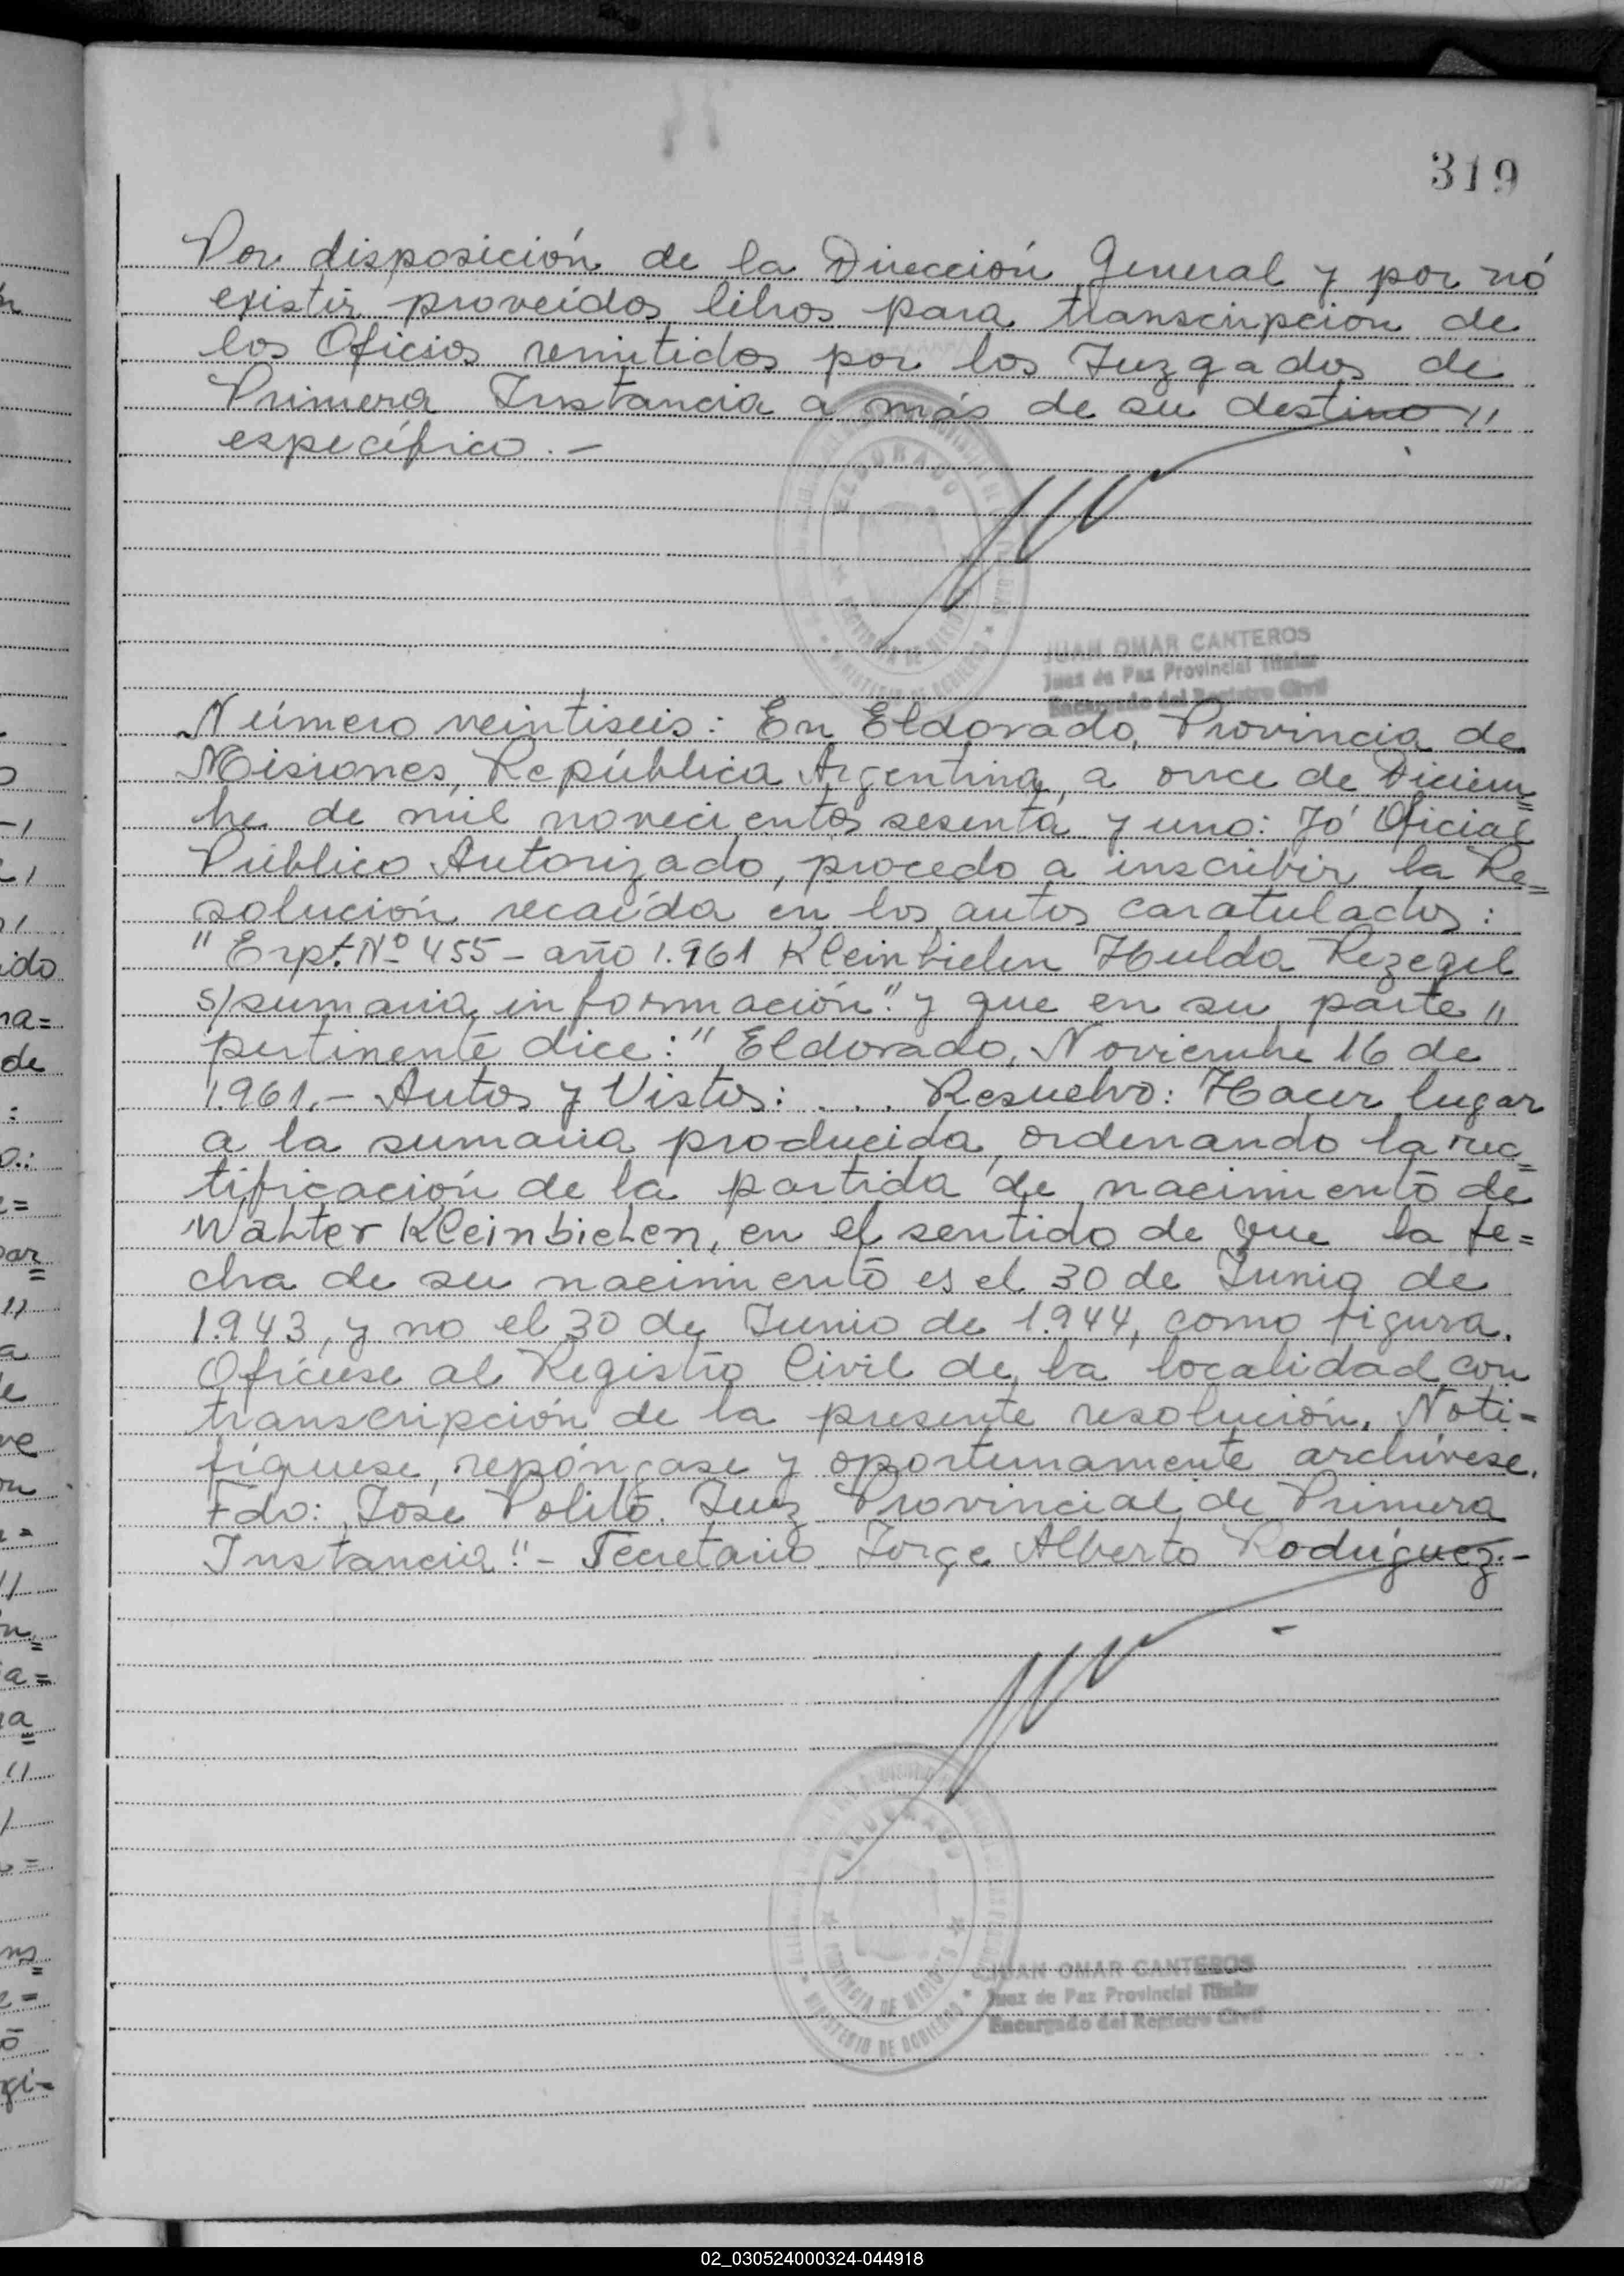 319
Por disposición de la Dirección General y por nó
existir proveidos libros para transcripcion de
los Oficios remitidos por los Juzgados de
Primera Instancia a más de su destino "
específico.-
ELDORADO
JUAN OMAR CANTEROS
Juez de Paz Provincial Titular
Encargado del Registro Civil
Número veintiseis: En Eldorado, Provincia de
Misiones, República Argentina, a once de Diciem=
bre de mil novecientos sesenta y uno: Yó Oficial
Público Autorizado, procedo a inscribir la Re=
solución recaída en los autos caratulados:
"Expt. Nº 455 - año 1.961 Kleinbielen Hulda Rezegel
s/sumaria información" y que en su parte "
pertinente dice: "Eldorado, Noviembre 16 de
1.961.- Autos y Vistos: . . . Resuelvo: Hacer lugar
a la sumaria producida, ordenando la rec=
tificación de la partida de nacimiento de
Walter Kleinbielen, en el sentido de que la fe=
cha de su nacimiento es el 30 de Junio de
1.943, y no el 30 de Junio de 1.944, como figura.
Ofíciese al Registro Civil de la localidad con
transcripción de la presente resolución. Noti-
fíquese, repóngase y oportunamente archívese.
Fdo: José Polito. Juez Provincial de Primera
Instancia".- Secretario Jorge Alberto Rodríguez.-
ELDORADO
PROVINCIA DE MISIONES
MINISTERIO DE GOBIERNO
JUAN OMAR CANTEROS
Juez de Paz Provincial Titular
Encargado del Registro Civil
02_030524000324-044918